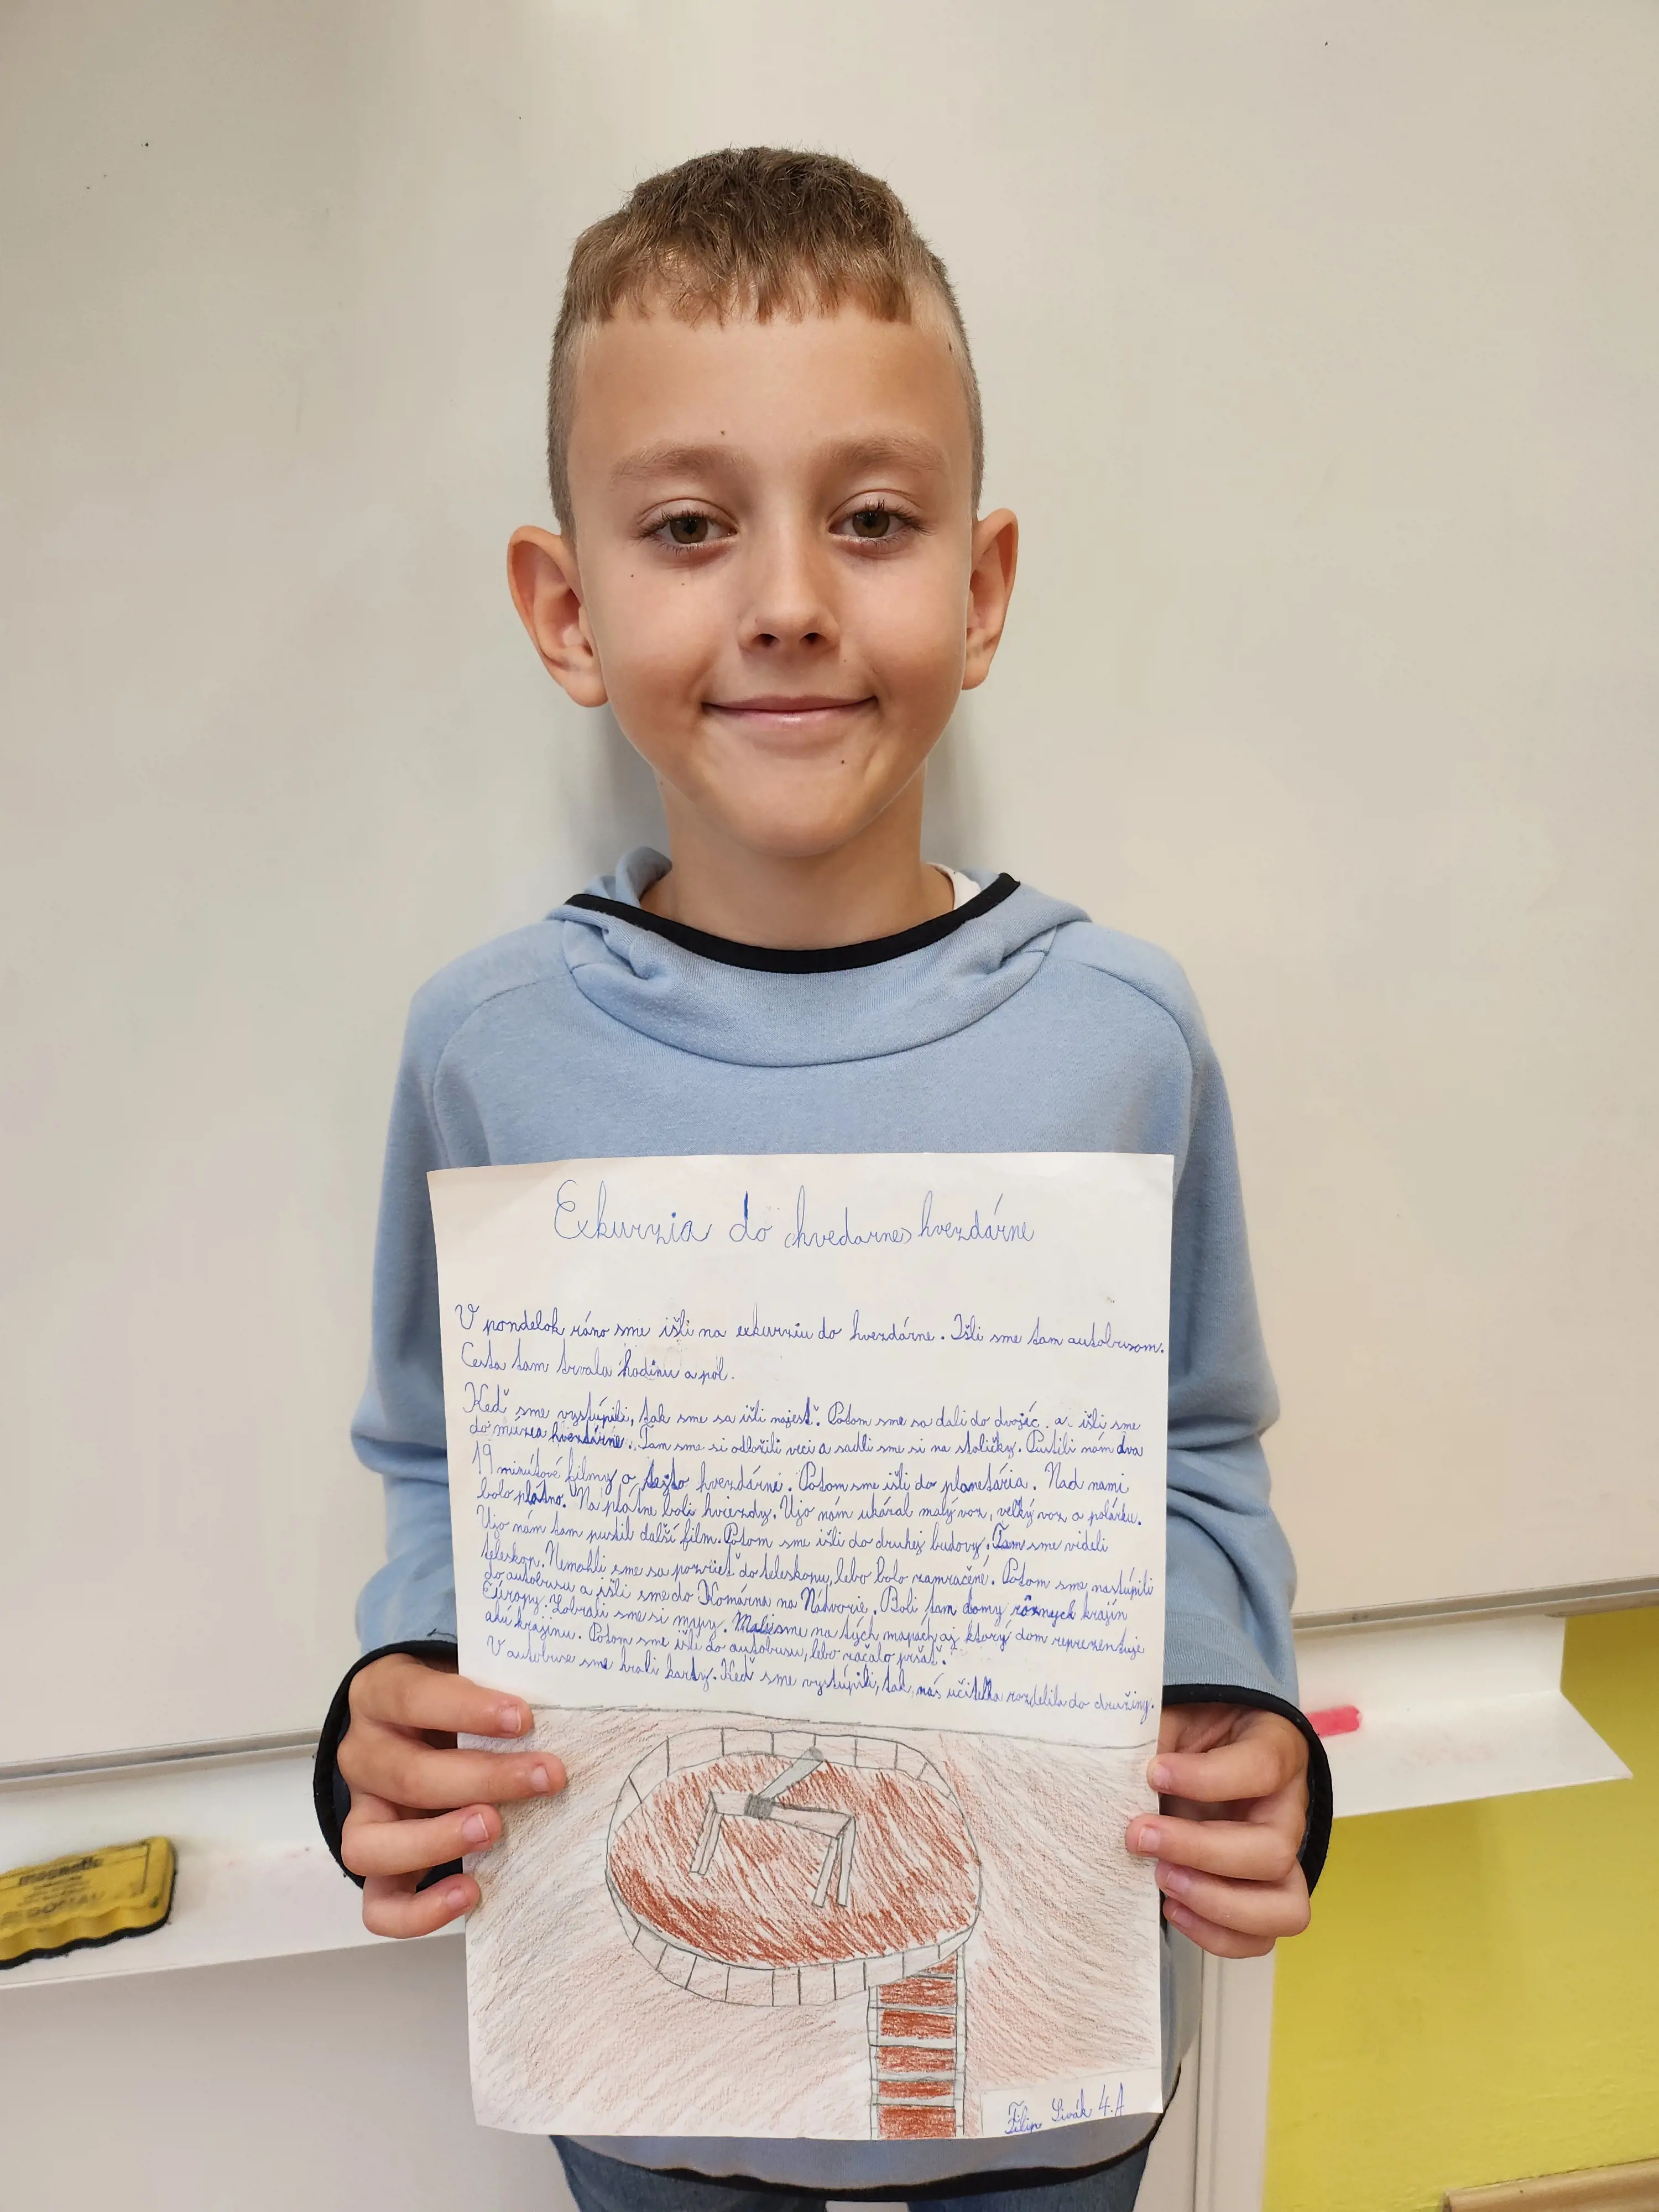 Exkurzia do (hvedarne) hvezdárne
V pondelok ráno sme išli na exkurziu do hvezdárne. Išli sme tam autobusom.
Cesta tam trvala hodinu a pol.
Keď sme vystúpili, tak sme sa išli najesť. Potom sme sa dali do dvojíc a išli sme
do múzea hvezdárne. Tam sme si odložili veci a sadli sme si na stoličky. Pustili nám dva
19 minútové filmy o tejto hvezdárni. Potom sme išli do planetária. Nad nami
bolo plátno. Na plátne boli hviezdy. Ujo nám ukázal malý voz, veľký voz a polárku.
Ujo nám tam pustil ďalší film. Potom sme išli do druhej budovy. Tam sme videli
teleskop. Nemohli sme sa pozrieť do teleskopu, lebo bolo zamračené. Potom sme nastúpili
do autobusu a išli sme do Komárna na Nádvorie. Boli tam domy rôznych krajín
Európy. Zobrali sme si mapy. Mali sme na tých mapách aj ktorý dom reprezentuje
akú krajinu. Potom sme išli do autobusu, lebo začalo pršať.
V autobuse sme hrali karty. Keď sme vystúpili, tak nás učiteľka rozdelila do družiny.
Filip Sivák 4.A
magnetic